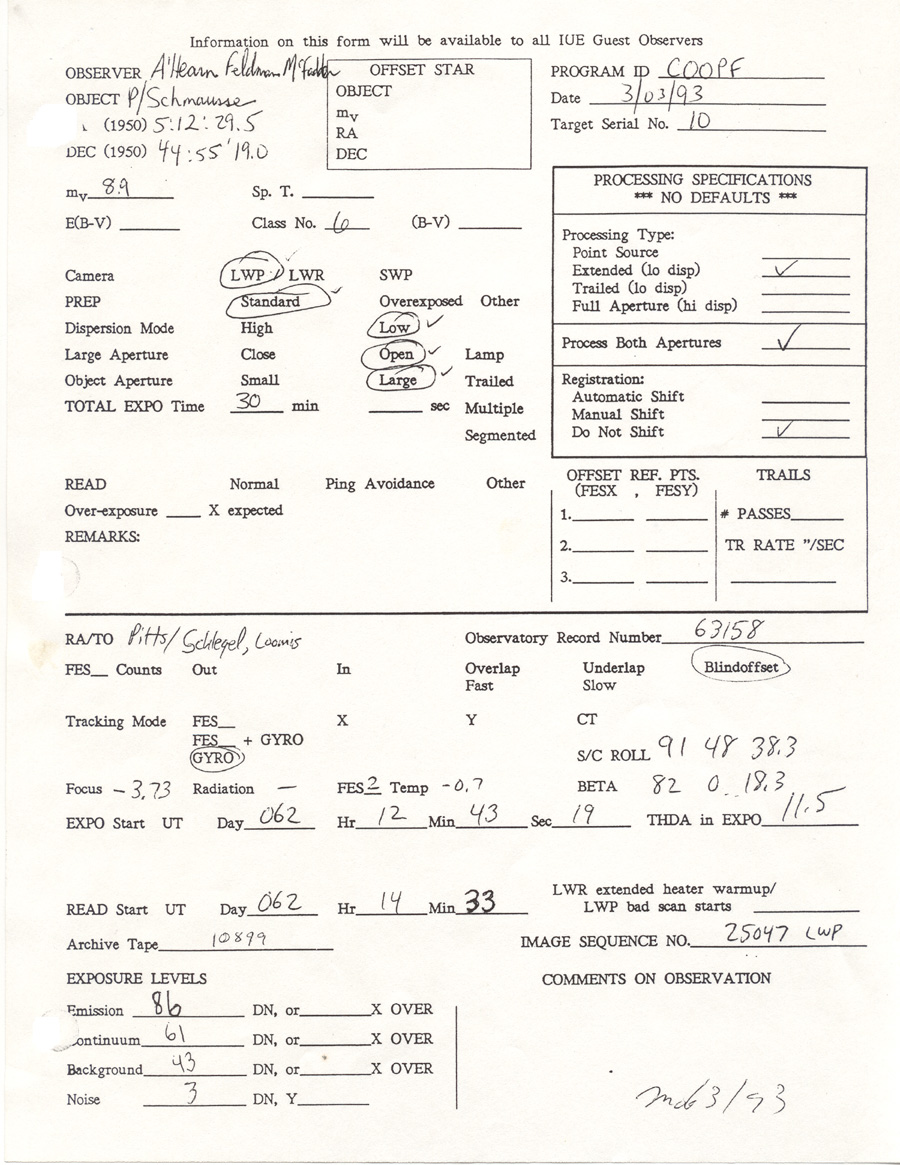 Information on this form will be available to all IUE Guest Observers
OBSERVER A'Hearn Feldman McFadden
OBJECT P/Schmausse
(1950) 5:12:29.5
DEC (1950) 44:55'19.0
OFFSET STAR
OBJECT
mv
RA
DEC
PROGRAM ID COOPF
Date 3/03/93
Target Serial No. 10
mv 8.9 Sp. T.
E(B-V) Class No. 6 (B-V)
Camera LWP LWR SWP
PREP Standard Overexposed Other
Dispersion Mode High Low
Large Aperture Close Open Lamp
Object Aperture Small Large Trailed
TOTAL EXPO Time 30 min sec Multiple
Segmented
PROCESSING SPECIFICATIONS
*** NO DEFAULTS ***
Processing Type:
Point Source
Extended (lo disp) ✓
Trailed (lo disp)
Full Aperture (hi disp)
Process Both Apertures ✓
Registration:
Automatic Shift
Manual Shift
Do Not Shift ✓
READ Normal Ping Avoidance Other
Over-exposure X expected
REMARKS:
OFFSET REF. PTS.
(FESX , FESY)
1.
2.
3.
TRAILS
# PASSES
TR RATE "/SEC
RA/TO Pitts/Schlegel, Loomis Observatory Record Number 63158
FES Counts Out In Overlap Underlap Blindoffset
Fast Slow
Tracking Mode FES X Y CT
FES + GYRO
GYRO
S/C ROLL 91 48 38.3
Focus -3.73 Radiation — FES 2 Temp -0.7 BETA 82 0 18.3
EXPO Start UT Day 062 Hr 12 Min 43 Sec 19 THDA in EXPO 11.5
LWR extended heater warmup/
READ Start UT Day 062 Hr 14 Min 33 LWP bad scan starts
Archive Tape 10899 IMAGE SEQUENCE NO. 25047 LWP
EXPOSURE LEVELS COMMENTS ON OBSERVATION
Emission 86 DN, or X OVER
ontinuum 61 DN, or X OVER
Background 43 DN, or X OVER
Noise 3 DN, Y
3/93